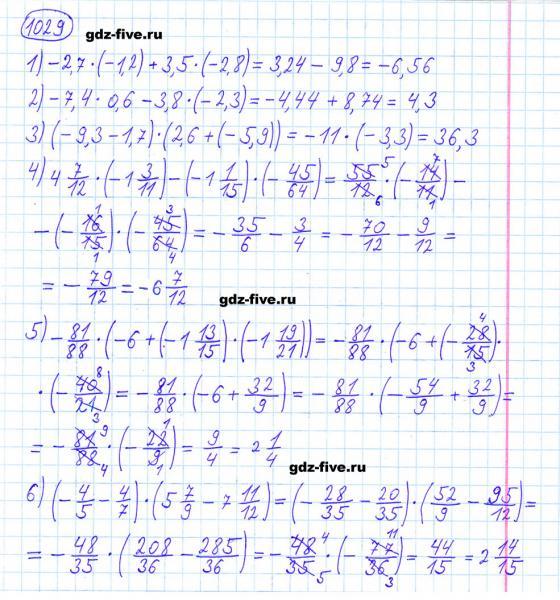 1029
gdz-five.ru
1) -2,7 · (-1,2) + 3,5 · (-2,8) = 3,24 - 9,8 = -6,56
2) -7,4 · 0,6 - 3,8 · (-2,3) = -4,44 + 8,74 = 4,3
3) (-9,3 - 1,7) · (2,6 + (-5,9)) = -11 · (-3,3) = 36,3
4) 4 7/12 · (-1 3/11) - (-1 1/15) · (-45/64) = 55 5/12 6 · (-14 7/11 1) -
- (-16 1/15 1) · (-45 3/64 4) = -35/6 - 3/4 = -70/12 - 9/12 =
= -79/12 = -6 7/12
gdz-five.ru
5) -81/88 · (-6 + (-1 13/15) · (-1 19/21)) = -81/88 · (-6 + (-28 4/15 3) ·
· (-40 8/21 3) = -81/88 · (-6 + 32/9) = -81/88 · (-54/9 + 32/9) =
= -81 9/88 4 · (-22 1/9 1) = 9/4 = 2 1/4
gdz-five.ru
6) (-4/5 - 4/7) · (5 7/9 - 7 11/12) = (-28/35 - 20/35) · (52/9 - 95/12) =
= -48/35 · (208/36 - 285/36) = -48 4/35 5 · (-77 11/36 3) = 44/15 = 2 14/15